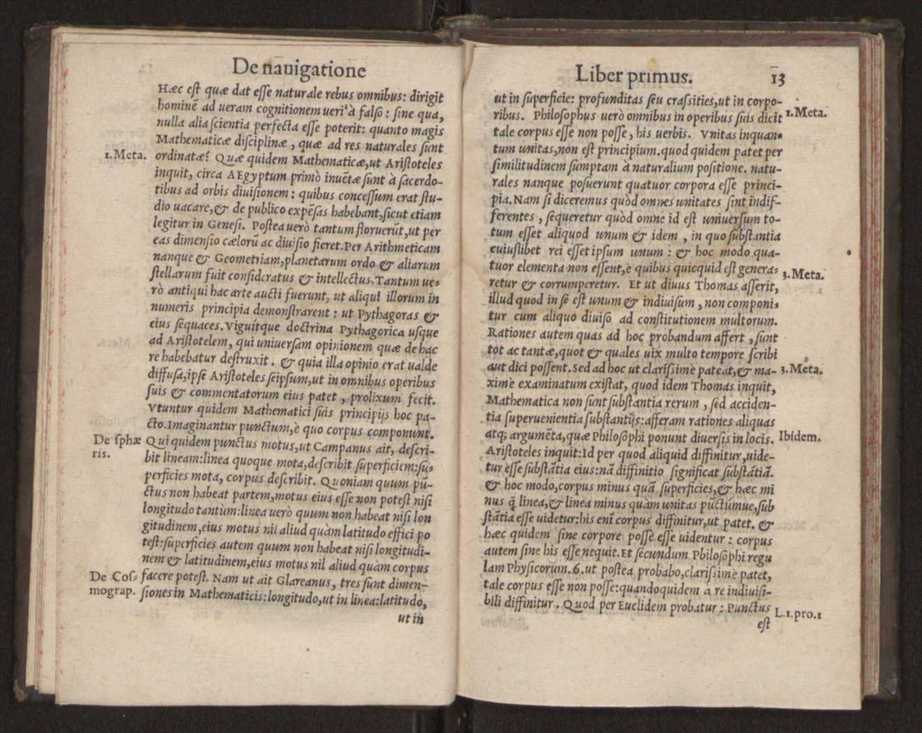 De nauigatione
Hæc est quæ dat esse naturale rebus omnibus: dirigit
hominē ad ueram cognitionem ueri à falso: sine qua,
nulla alia scientia perfecta esse poterit: quanto magis
Mathematicæ disciplinæ, quæ ad res naturales sunt
1.Meta.
ordinatæ? Quæ quidem Mathematicæ, ut Aristoteles
inquit, circa AEgyptum primò inuētæ sunt à sacerdo-
tibus ad orbis diuisionem: quibus concessum erat stu-
dio uacare, & de publico expēsas habebant, sicut etiam
legitur in Genesi. Postea uerò tantum floruerūt, ut per
eas dimensio cælorū ac diuisio fieret. Per Arithmeticam
nanque & Geometriam, planetarum ordo & aliarum
stellarum fuit consideratus & intellectus. Tantum ue-
rò antiqui hac arte aucti fuerunt, ut aliqui illorum in
numeris principia demonstrarent: ut Pythagoras &
eius sequaces. Viguitque doctrina Pythagorica usque
ad Aristotelem, qui uniuersam opinionem quæ de hac
re habebatur destruxit. & quia illa opinio erat ualde
diffusa, ipse Aristoteles seipsum, ut in omnibus operibus
suis & commentatorum eius patet, prolixum fecit.
Vtuntur quidem Mathematici suis principijs hoc pa-
cto. Imaginantur punctum, è quo corpus componunt.
De sphæ
ris.
Qui quidem punctus motus, ut Campanus ait, descri-
bit lineam: linea quoque mota, describit superficiem: su-
perficies mota, corpus describit. Quoniam quum pū-
ctus non habeat partem, motus eius esse non potest nisi
longitudo tantum: linea uerò quum non habeat nisi lon
gitudinem, eius motus nil aliud quàm latitudo effici po
test: superficies autem quum non habeat nisi longitudi-
nem & latitudinem, eius motus nil aliud quàm corpus
De Cos-
mograp.
facere potest. Nam ut ait Glareanus, tres sunt dimen-
siones in Mathematicis: longitudo, ut in linea: latitudo,
ut in
Liber primus. 13
ut in superficie: profunditas seu crassities, ut in corpo-
ribus. Philosophus uerò omnibus in operibus suis dicit
1.Meta.
tale corpus esse non posse, his uerbis. Vnitas inquan-
tum unitas, non est principium. quod quidem patet per
similitudinem sumptam à naturalium positione. natu-
rales nanque posuerunt quatuor corpora esse princi-
pia. Nam si diceremus quòd omnes unitates sint indif-
ferentes, sequeretur quòd omne id est uniuersum to-
tum esset aliquod unum & idem, in quo substantia
cuiuslibet rei esset ipsum unum: & hoc modo qua-
tuor elementa non essent, è quibus quicquid est genera-
3.Meta.
retur & corrumperetur. Et ut diuus Thomas asserit,
illud quod in se est unum & indiuisum, non componi-
tur cum aliquo diuiso ad constitutionem multorum.
Rationes autem quas ad hoc probandum affert, sunt
tot ac tantæ, quot & quales uix multo tempore scribi
aut dici possent. Sed ad hoc ut clarissimè pateat, & ma-
3.Meta.
ximè examinatum existat, quod idem Thomas inquit,
Mathematica non sunt substantia rerum, sed acciden-
tia superuenientia substantijs: asseram rationes aliquas
atq; argumēta, quæ Philosophi ponunt diuersis in locis.
Ibidem.
Aristoteles inquit: Id per quod aliquid diffinitur, uide-
tur esse substātia eius: nā diffinitio significat substātiā.
& hoc modo, corpus minus quā superficies, & hæc mi
nus q̃ linea, & linea minus quàm unitas punctúmue, sub
stātia esse uidetur: his eni corpus diffinitur, ut patet. &
hæc quidem sine corpore posse esse uidentur: corpus
autem sine his esse nequit. Et secundum Philosophi regu
lam Physicorum. 6. ut postea probabo, clarissimè patet,
tale corpus esse non posse: quandoquidem à re indiuisi-
bili diffinitur. Quod per Euclidem probatur: Punctus
L.1.pro.1
est